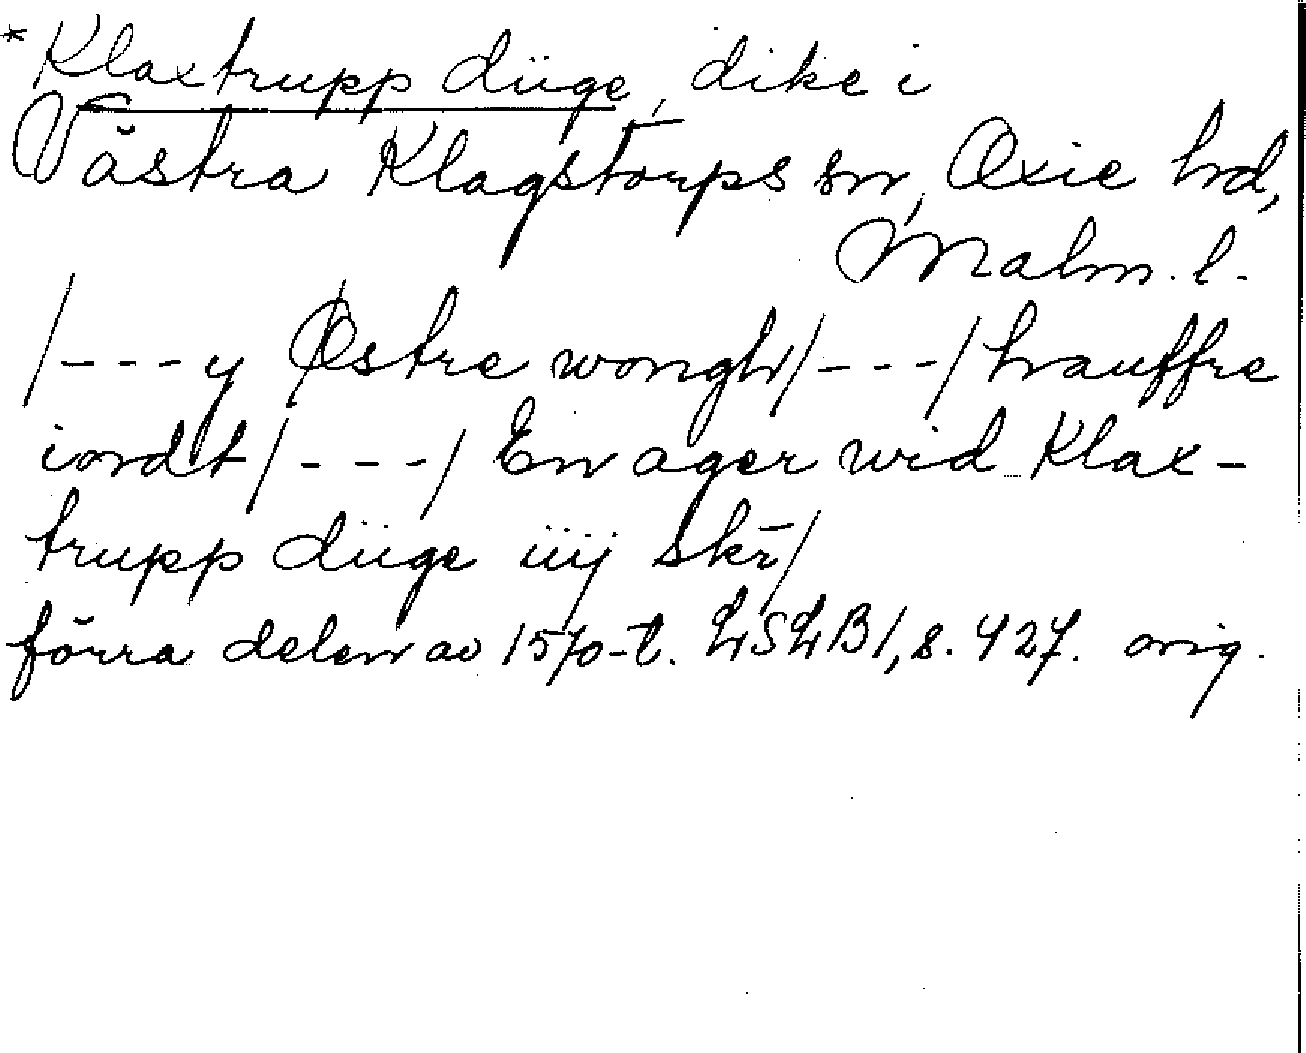 *Klaxtrupp düge, dike i
Västra Klagstorps sn, Oxie hd,
Malm. l.
/---y Østre wongh/---/hauffre
iordt/---/ En ager wid Klax-
trupp düge iiij skr̄/
förra delen av 1570-t. LSLB1, s. 427. orig.